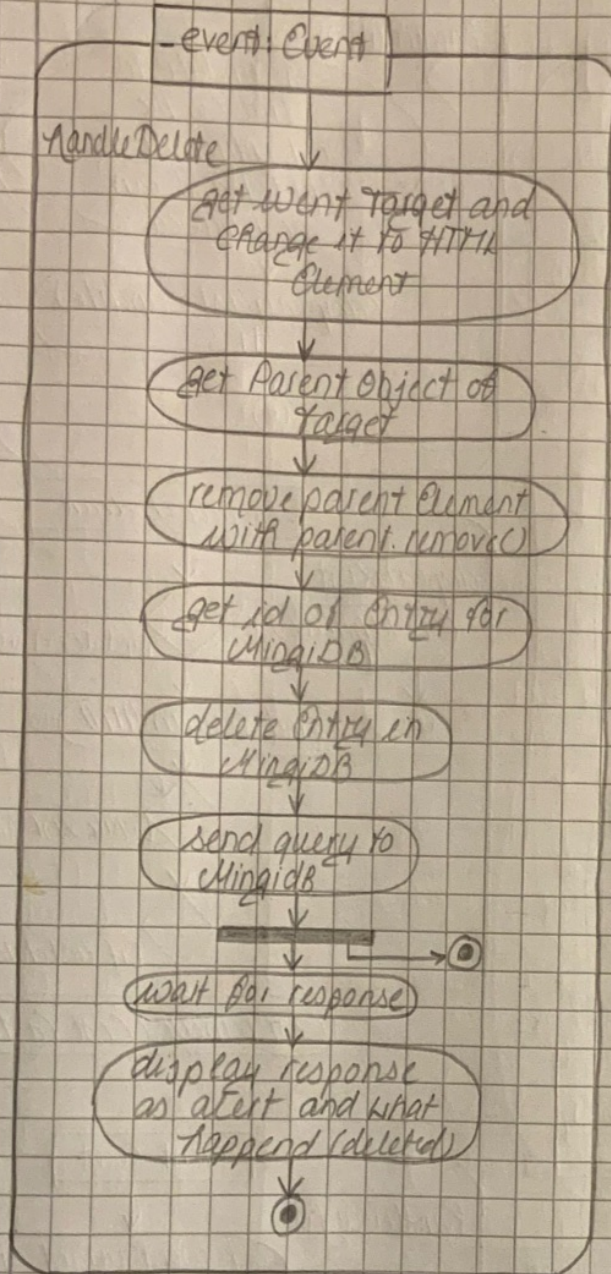 -event: Event
handleDelete
get event Target and
change it to HTML
Element
get Parent Object of
Target
remove parent Element
with parent.remove()
get id of Entry for
MingiDB
delete Entry in
MingiDB
send query to
MingidB
wait for response
display response
as alert and what
happend (deleted)